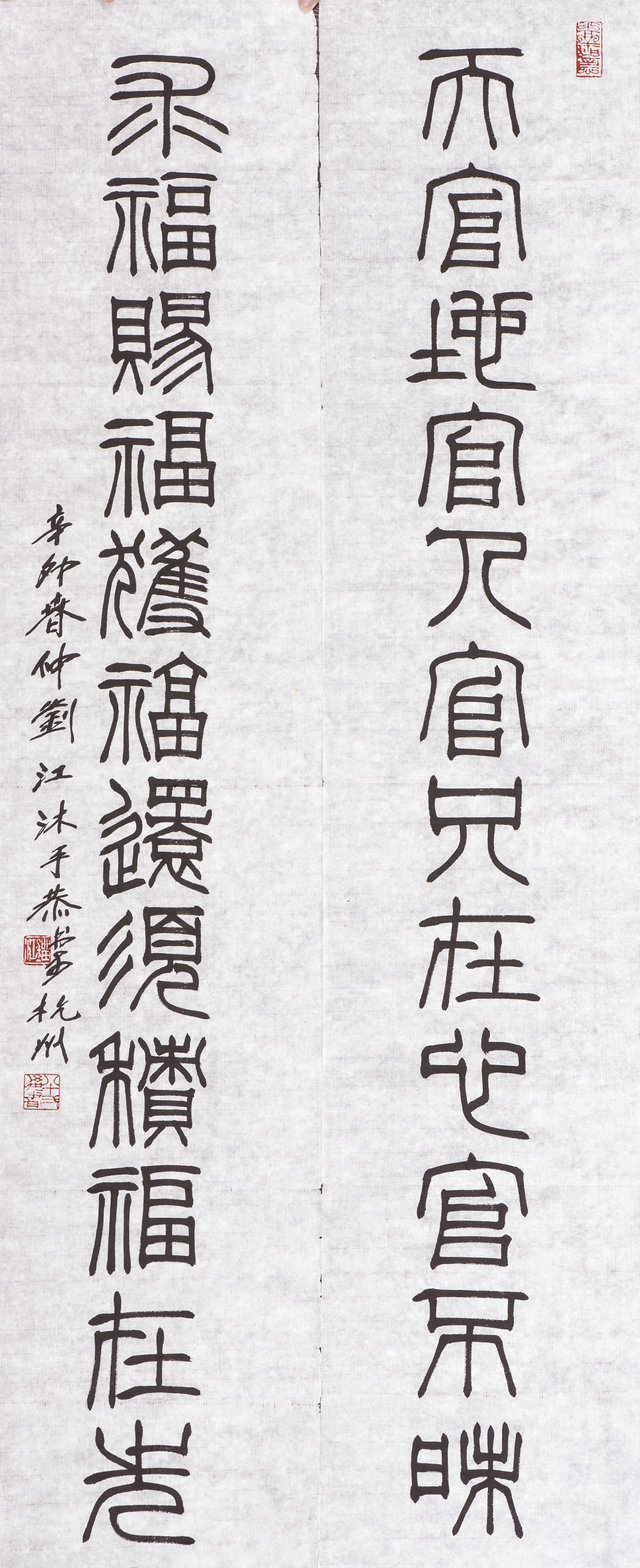 天官地官人官只在心官不昧
求福賜福獲福還須積福在先
辛卯春仲劉江沐手恭篆
杭州